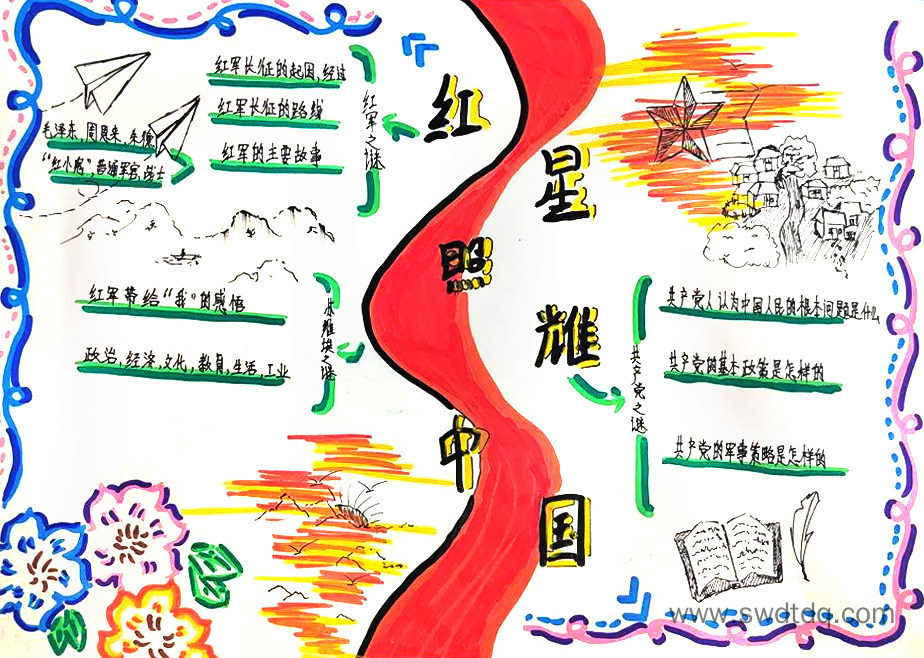 红星照耀中国
红军之谜
红军长征的起因,经过
红军长征的路线
红军的主要故事
毛泽东,周恩来,朱德
"红小鬼",普通军官,战士
苏维埃之谜
红军带给"我"的感悟
政治,经济,文化,教育,生活,工业
共产党之谜
共产党人认为中国人民的根本问题是什么
共产党的基本政策是怎样的
共产党的军事策略是怎样的
www.swdtdq.com